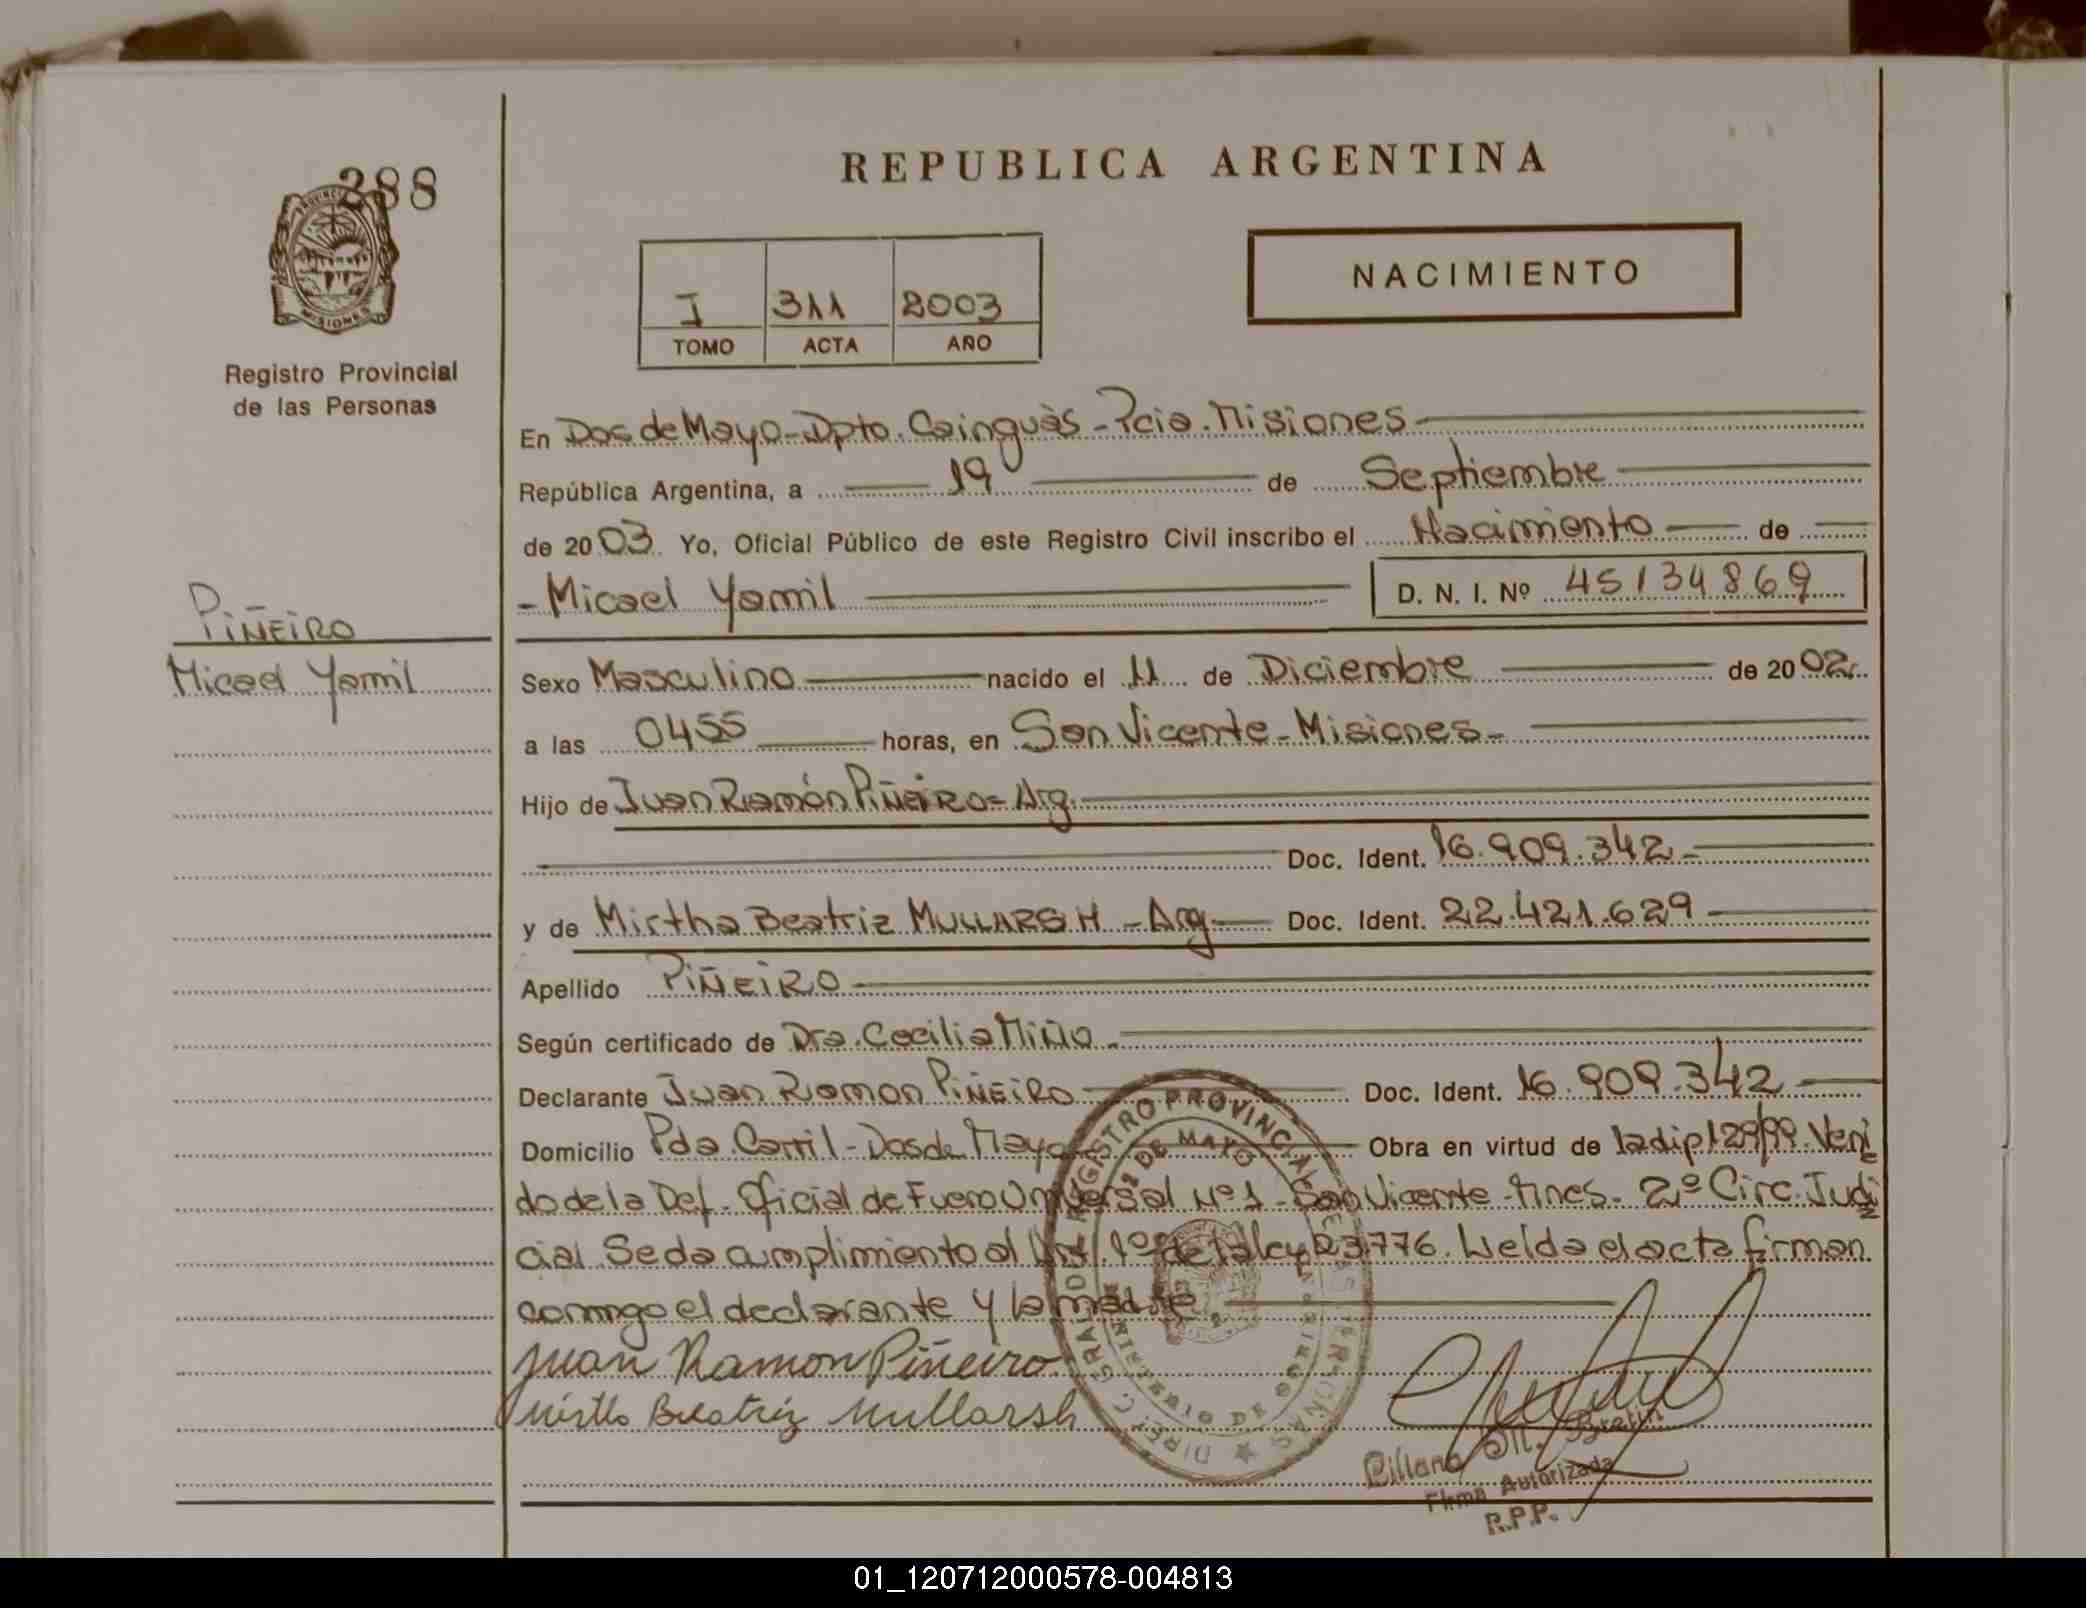 REPUBLICA ARGENTINA
288
PROVINCIA
MISIONES
Registro Provincial
de las Personas
I 311 2003
TOMO ACTA AÑO
NACIMIENTO
En Dos de Mayo - Dpto. Cainguàs - Pcia. Misiones
República Argentina, a 19 de Septiembre
de 2003. Yo, Oficial Público de este Registro Civil inscribo el Nacimiento de
- Micael Yamil D. N. I. Nº 45134869
PIÑEIRO
Micael Yamil
Sexo Masculino nacido el 11 de Diciembre de 2002.
a las 0455 horas, en San Vicente - Misiones -
Hijo de Juan Ramón PIÑEIRO = Arg.
Doc. Ident. 16.909.342 -
y de Mirtha Beatriz MULLARSH - Arg Doc. Ident. 22.421.629
Apellido PIÑEIRO
Según certificado de Dra. Cecilia Miño.
Declarante Juan Ramon PIÑEIRO Doc. Ident. 16.909.342
Domicilio Pda. Carril - Dos de Mayo Obra en virtud de la dip 129/99. Veni
do de la Def. Oficial de Fuero Universal Nº 1 - San Vicente - Mnes. 2º Circ. Judi
cial. Se da cumplimiento al Art. 1º de la ley 23.776. Leída el acta firman
conmigo el declarante y la madre
Juan Ramon Piñeiro
Mirtha Beatriz Mullarsh
REGISTRO PROVINCIAL DE LAS PERSONAS
2 DE MAYO
Firma Autorizada
R.P.P.
01_120712000578-004813